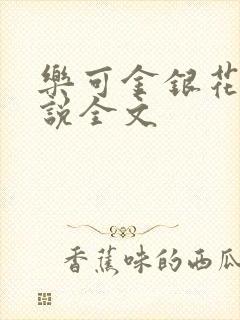 樂可金銀花
說全文
香蕉味的西瓜